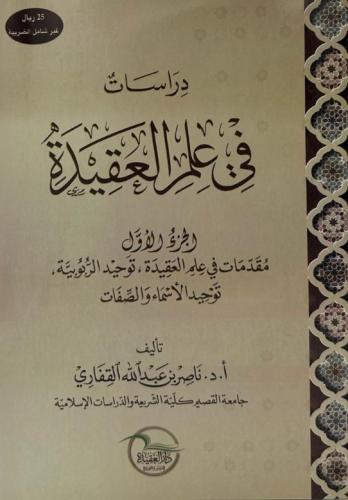 25 ريال
غير شامل الضريبة
دِرَاسَاتٌ
فِي عِلْمِ العَقِيدَةِ
الجُزْءُ الأَوَّل
مُقَدِّمَات فِي عِلْمِ العَقِيدَة ، تَوْحِيد الرُّبُوبِيَّة ،
تَوْحِيد الأَسْمَاء وَالصِّفَات
تأليف
أ.د. نَاصِر بن عَبدالله القِفَاري
جامعة القصيم كلية الشريعة والدراسات الإسلامية
دار العقيدة